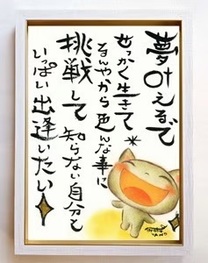 夢叶えるで
せっかく生きて
るんやから色んな事に
挑戦して 知らない自分と
いっぱい出逢いたい